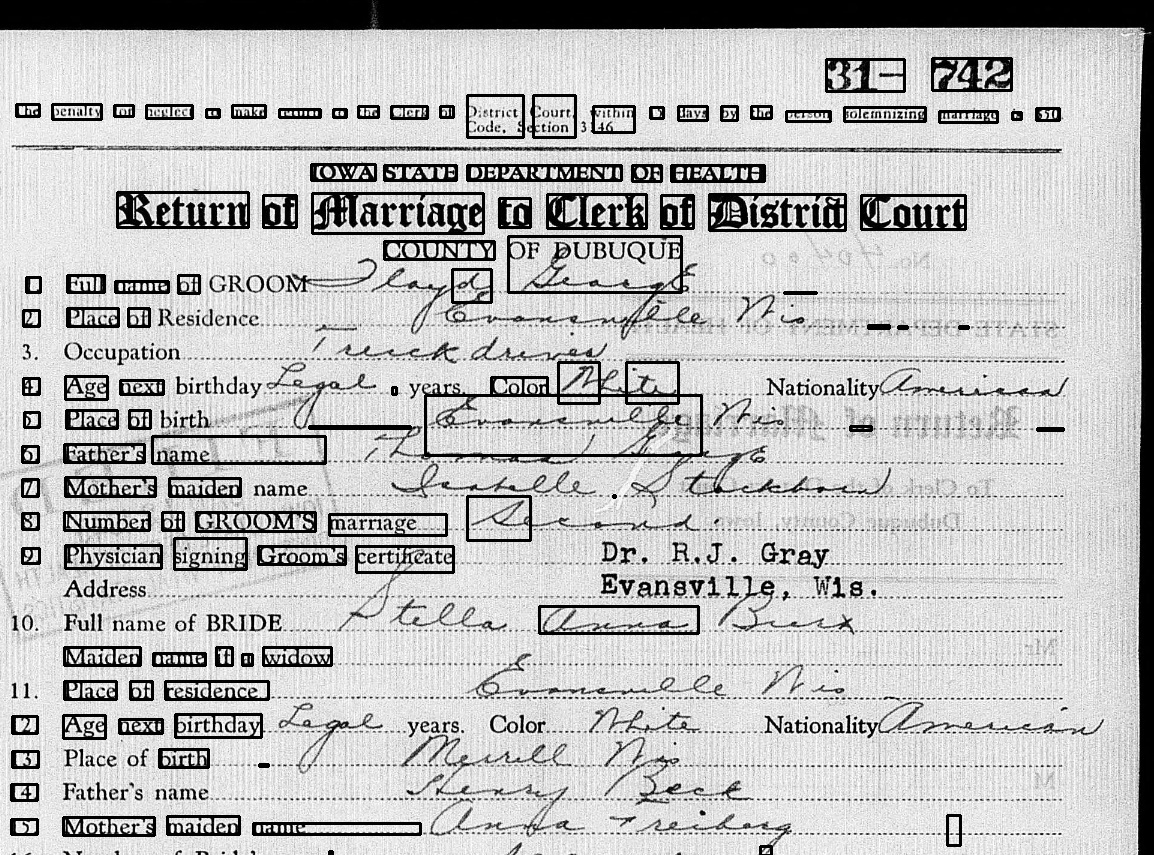 31-742
The penalty for neglect to make return to the Clerk of District Court, within 15 days by the person solemnizing marriage is $50
Code, Section 3146
IOWA STATE DEPARTMENT OF HEALTH
Return of Marriage to Clerk of District Court
COUNTY OF DUBUQUE
1. Full name of GROOM Floyd George
2. Place of Residence Evansville Wis
3. Occupation Truck driver
4. Age next birthday Legal years. Color White Nationality American
5. Place of birth Evansville Wis
6. Father's name Thomas George
7. Mother's maiden name Isabelle
8. Number of GROOM'S marriage Second
9. Physician signing Groom's certificate Dr. R.J. Gray
Address Evansville, Wis.
10. Full name of BRIDE Stella Anna
Maiden name if a widow
11. Place of residence Evansville Wis
12. Age next birthday Legal years. Color White Nationality American
13. Place of birth Merrell Wis
14. Father's name Henry Beck
15. Mother's maiden name Anna Freiberg